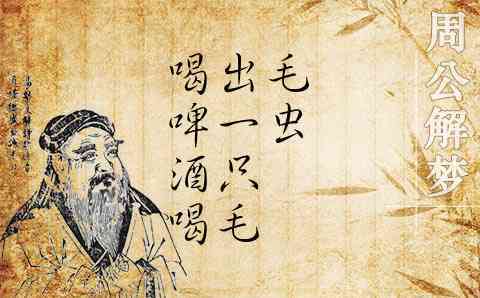 周公解梦
喝啤酒喝
出一只毛
毛虫